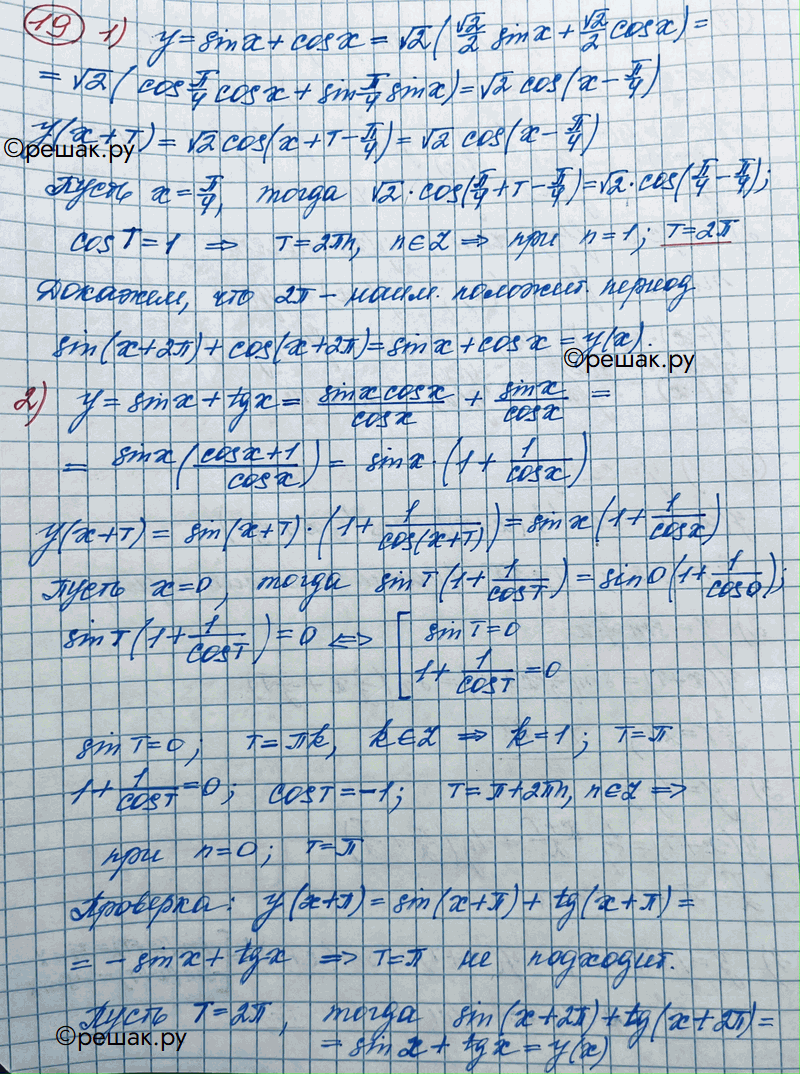 19 1) y = sin x + cos x = √2 (√2/2 sin x + √2/2 cos x) =
= √2 (cos π/4 cos x + sin π/4 sin x) = √2 cos(x − π/4)
y(x+T) = √2 cos(x + T − π/4) = √2 cos(x − π/4)
©решак.ру
Пусть x = π/4, тогда √2 · cos(π/4 + T − π/4) = √2 · cos(π/4 − π/4);
cos T = 1 ⇒ T = 2πn, n ∈ Z ⇒ при n = 1; T = 2π
Докажем, что 2π – наим. положит. период
sin(x+2π) + cos(x+2π) = sin x + cos x = y(x).
©решак.ру
2) y = sin x + tg x = sin x cos x / cos x + sin x / cos x =
= sin x ((cos x + 1) / cos x) = sin x · (1 + 1/cos x)
y(x+T) = sin(x+T) · (1 + 1/cos(x+T)) = sin x (1 + 1/cos x)
Пусть x = 0, тогда sin T (1 + 1/cos T) = sin 0 (1 + 1/cos 0);
sin T (1 + 1/cos T) = 0 ⇔ [ sin T = 0
1 + 1/cos T = 0
sin T = 0; T = πk, k ∈ Z ⇒ k = 1; T = π
1 + 1/cos T = 0; cos T = −1; T = π + 2πn, n ∈ Z ⇒
при n = 0; T = π
Проверка: y(x+π) = sin(x+π) + tg(x+π) =
= − sin x + tg x ⇒ T = π не подходит.
Пусть T = 2π, тогда sin(x+2π) + tg(x+2π) =
= sin x + tg x = y(x)
©решак.ру